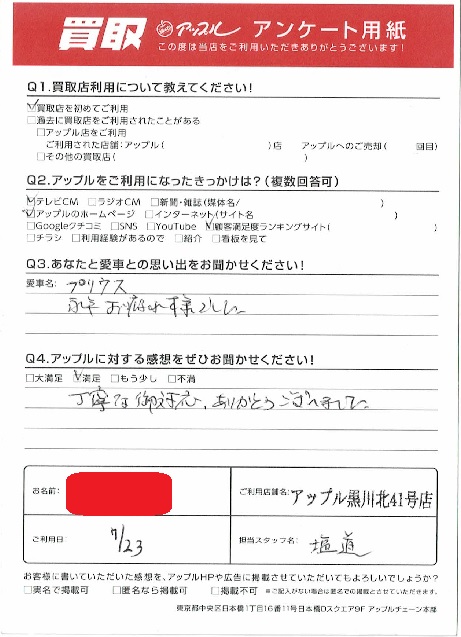 買取 アップル アンケート用紙
この度は当店をご利用いただきありがとうございます!
Q1.買取店利用について教えてください!
☑買取店を初めてご利用
□過去に買取店をご利用されたことがある
□アップル店をご利用
ご利用された店舗:アップル( )店 アップルへのご売却( 回目)
□その他の買取店( )
Q2.アップルをご利用になったきっかけは?(複数回答可)
☑テレビCM □ラジオCM □新聞・雑誌(媒体名/ )
☑アップルのホームページ □インターネット(サイト名 )
□Googleクチコミ □SNS □YouTube ☑顧客満足度ランキングサイト( )
□チラシ □利用経験があるので □紹介 □看板を見て
Q3.あなたと愛車との思い出をお聞かせください!
愛車名: プリウス
永年お疲れ様でした
Q4.アップルに対する感想をぜひお聞かせください!
□大満足 ☑満足 □もう少し □不満
丁寧な御対応、ありがとうございました
お名前:
ご利用店舗名: アップル黒川北41号店
ご利用日: 7/23
担当スタッフ名: 塩道
お客様に書いていただいた感想を、アップルHPや広告に掲載させていただいてもよろしいでしょうか?
□実名で掲載可 □匿名なら掲載可 □掲載不可 ※ご記入がない場合は匿名での掲載とさせていただきます。
東京都中央区日本橋1丁目16番11号日本橋Dスクエア9F アップルチェーン本部